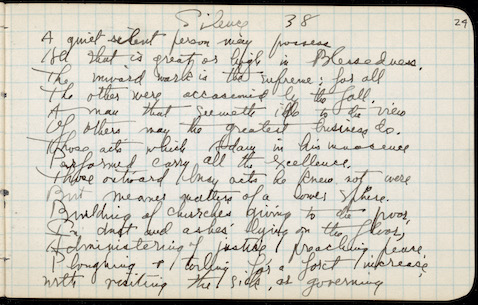 Silence 38
29
A quiet silent person may possess
All that is great or high in Blessedness.
The inward work is the supreme: for all
The other were occasioned by the fall.
A man that seemeth idle to the view
Of others may the greatest business do.
Those acts which Adam in his innocence
Performed carry all the excellence.
Those outward busy acts he knew not were
But meaner matters of a lower sphere.
Building of churches giving to the poor,
In dust and ashes lying on the floor,
Administering of justice, preaching peace,
Ploughing & toiling for a forct increase,
With visiting the sick, or governing